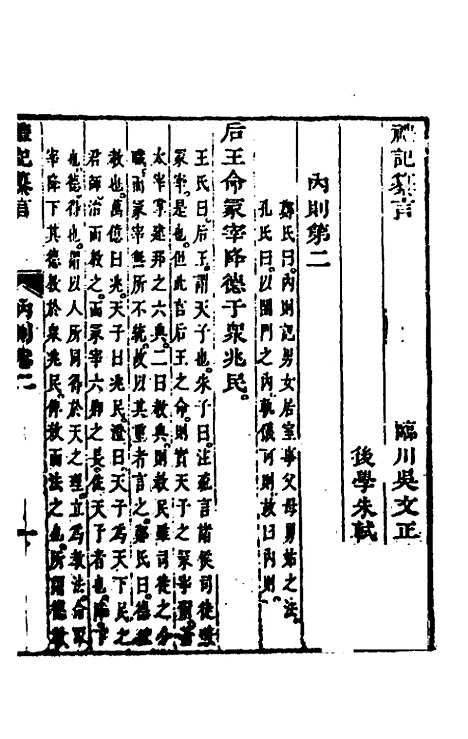 禮記纂言
臨川吳文正
後學朱軾
內則第二
鄭氏曰內則記男女居室事父母舅姑之法
孔氏曰以閨門之內軌儀可則故曰內則
后王命冢宰降德于眾兆民
王氏曰后王謂天子也朱子曰注疏言諸侯司徒兼
冢宰是也但此言后王之命則實天子之冢宰爾
太宰掌建邦之六典二曰教典則教民雖司徒之分
職而冢宰無所不統故以其重者言之鄭氏曰德猶
教也萬億曰兆天子曰兆民澄曰天子為天下民之
君師治而教之而冢宰六卿之長佐天子者也降下
也德得也謂以人所同得於天之理立為教法命冢
宰降下其德教於眾兆民俾效而法之也所謂德教
禮記纂言
內則卷二
一